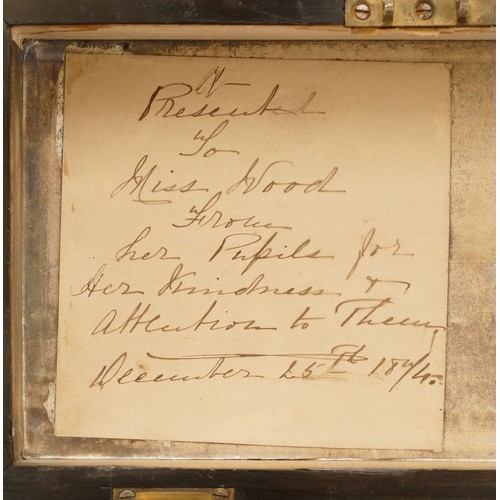 Presented
To
Miss Wood
From
her Pupils for
Her Kindness &
Attention to Them
December 25th